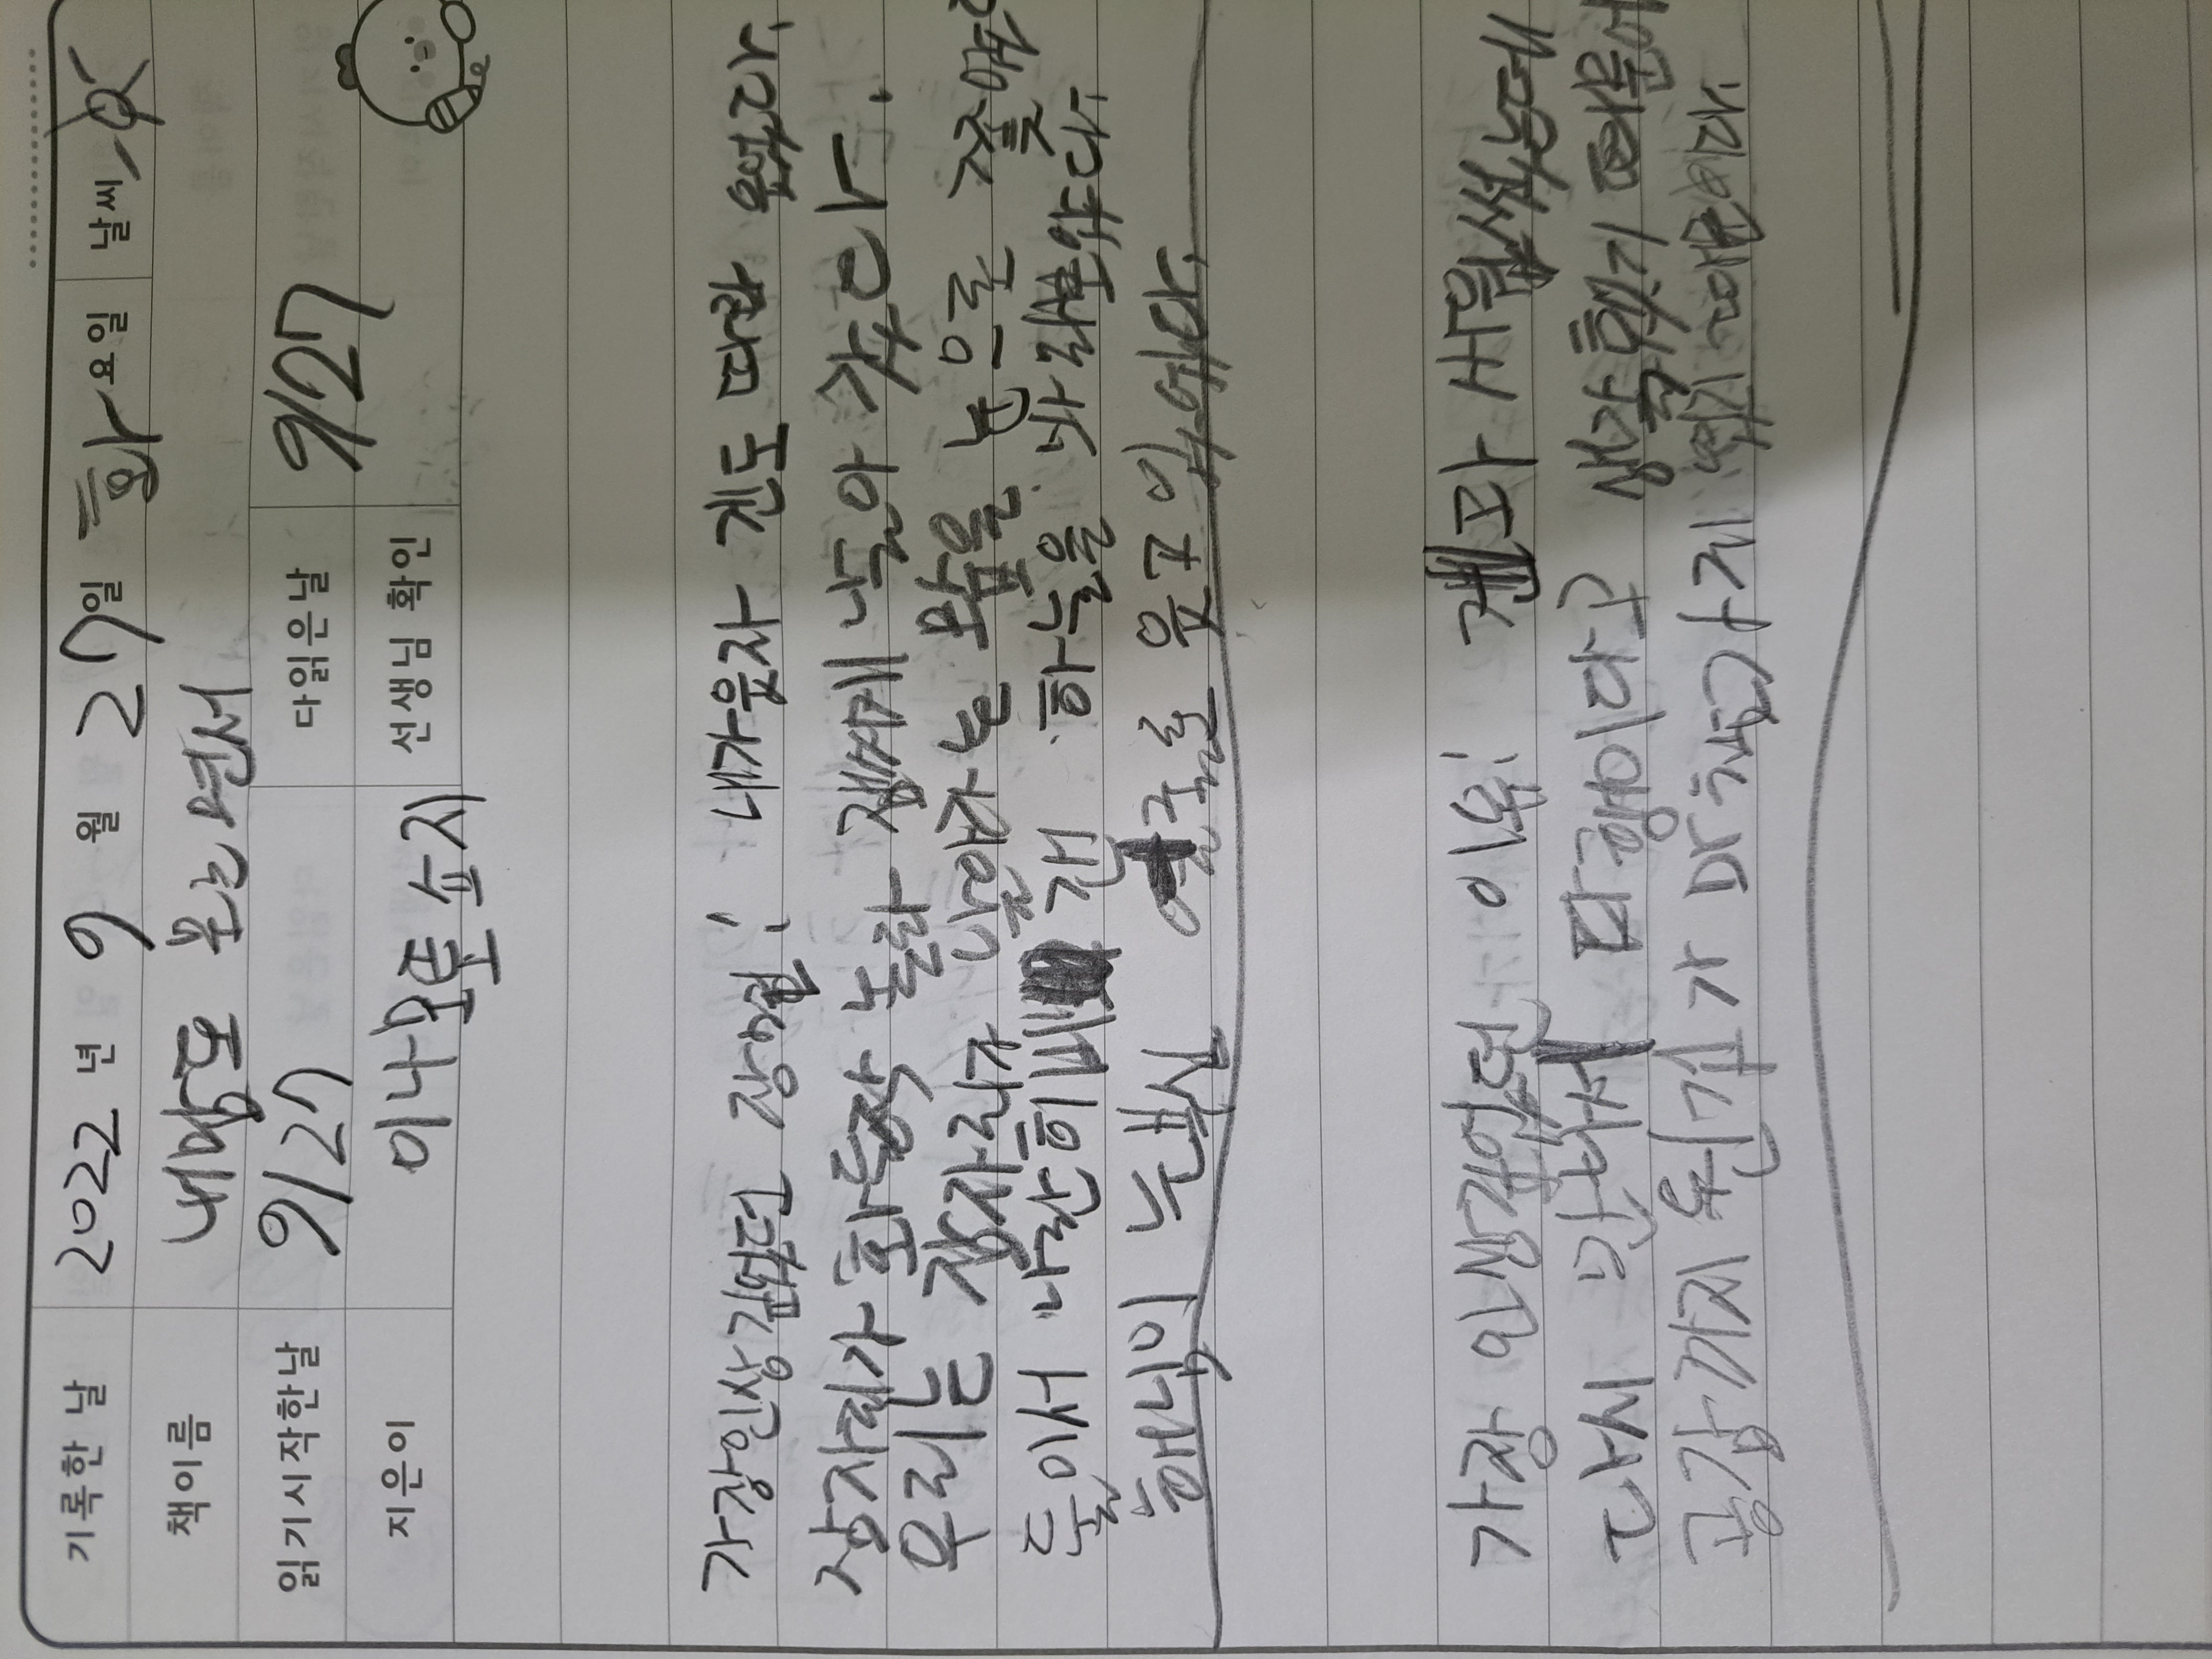 기록한 날 2022 년 9 월 27일 화요일 날씨
책이름 내맘도 모르면서
읽기시작한날 9/27 다읽은날 9/27
지은이 이나모토 쇼지 선생님 확인
가장인상깊었던 장면: 내가웃자 겐도 따라 웃었다.
잠자리가 화들작 놀라 잽싸게 날아 갔다.
우리는 잠자리가 날아가는 모습을 눈으로 쫓았
둘이서 나란히 갠 하늘을 바라보았다.
해님이 눈부신 얼굴로 웃고 있었다.
가장 인상깊었던 이유: 겐과 싸웠는데
다시 만나서 다행이다고 생각했기 때문에
공감까지 된 마찬가지 때문이다.